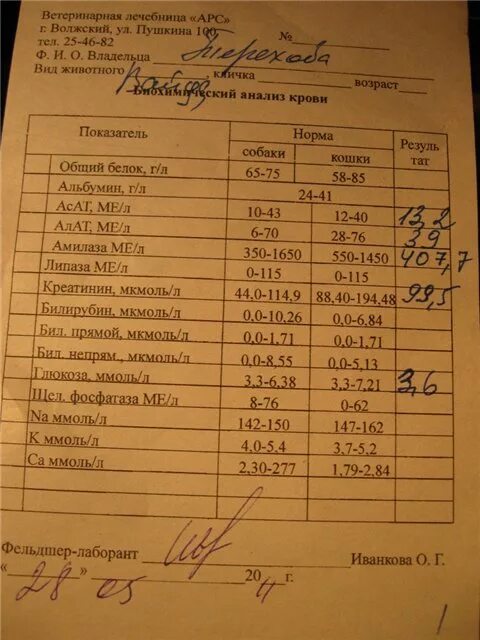 Ветеринарная лечебница «АРС»
г. Волжский, ул. Пушкина 100, №
тел. 25-46-82
Ф. И. О. Владельца Терехова
Вид животного , кличка возраст
Биохимический анализ крови
Показатель Норма Резуль
тат
собаки кошки
Общий белок, г/л 65-75 58-85
Альбумин, г/л 24-41
АсАТ, МЕ/л 10-43 12-40 13,2
АлАТ, МЕ/л 6-70 28-76 39
Амилаза МЕ/л 350-1650 550-1450 407,7
Липаза МЕ/л 0-115 0-115
Креатинин, мкмоль/л 44,0-114,9 88,40-194,48 99,5
Билирубин, мкмоль/л 0,0-10,26 0,0-6,84
Бил. прямой, мкмоль/л 0,0-1,71 0,0-1,71
Бил. непрям., мкмоль/л 0,0-8,55 0,0-5,13
Глюкоза, ммоль/л 3,3-6,38 3,3-7,21 3,6
Щел. фосфатаза МЕ/л 8-76 0-62
Na ммоль/л 142-150 147-162
К ммоль/л 4,0-5,4 3,7-5,2
Ca ммоль/л 2,30-277 1,79-2,84
Фельдшер-лаборант Иванкова О. Г.
«28» 05 2011 г.
1